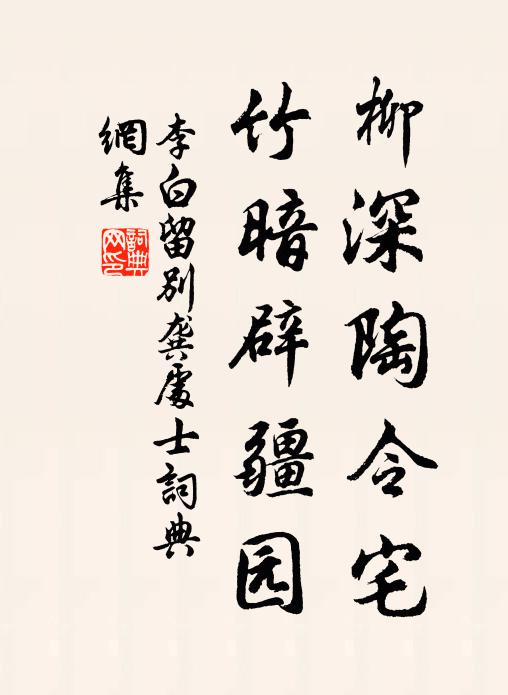 柳深陶令宅
竹暗辟疆园
李白留别龚處士詞典
網集
詞典网印